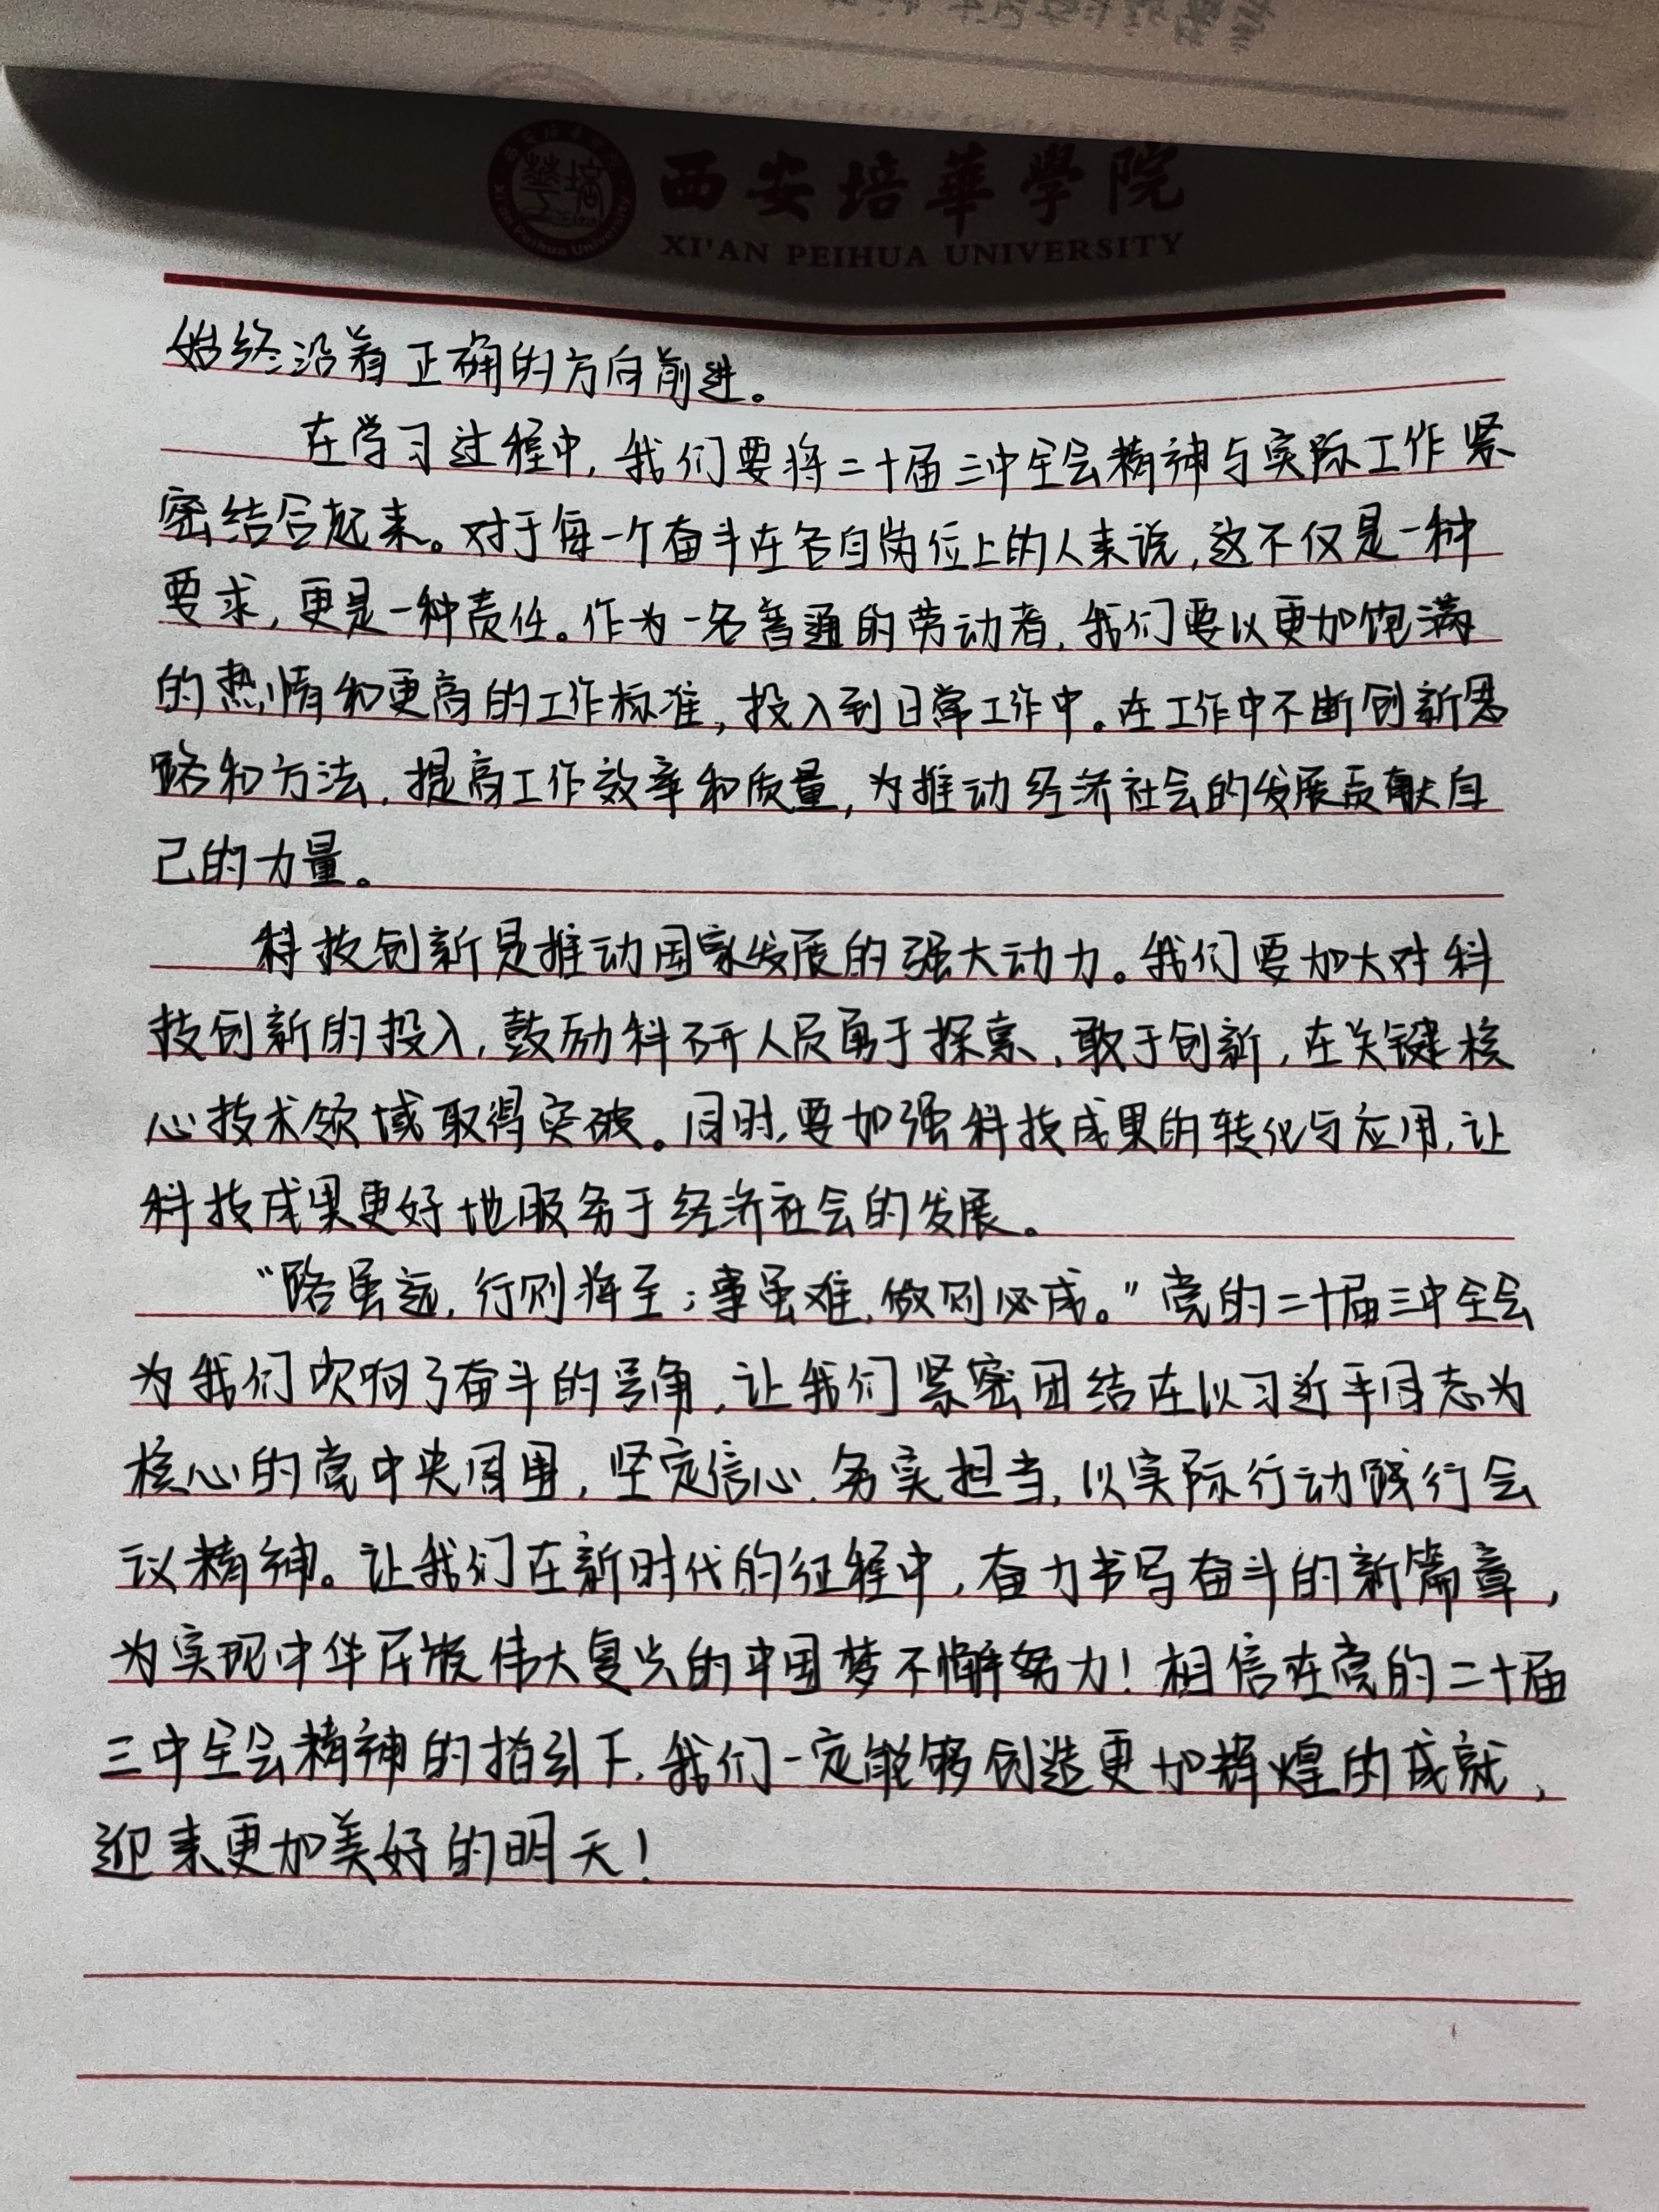 西安培華學院
XI'AN PEIHUA UNIVERSITY
始终沿着正确的方向前进。
在学习过程中,我们要将二十届三中全会精神与实际工作紧
密结合起来。对于每一个奋斗在各自岗位上的人来说,这不仅是一种
要求,更是一种责任。作为一名普通的劳动者,我们要以更加饱满
的热情和更高的工作标准,投入到日常工作中。在工作中不断创新思
路和方法,提高工作效率和质量,为推动经济社会的发展贡献自
己的力量。
科技创新是推动国家发展的强大动力。我们要加大对科
技创新的投入,鼓励科研人员勇于探索、敢于创新,在关键核
心技术领域取得突破。同时,要加强科技成果的转化与应用,让
科技成果更好地服务于经济社会的发展。
“路虽远,行则将至;事虽难,做则必成。”党的二十届三中全会
为我们吹响了奋斗的号角,让我们紧密团结在以习近平同志为
核心的党中央周围,坚定信心、务实担当,以实际行动践行会
议精神。让我们在新时代的征程中,奋力书写奋斗的新篇章,
为实现中华民族伟大复兴的中国梦不懈努力!相信在党的二十届
三中全会精神的指引下,我们一定能够创造更加辉煌的成就,
迎来更加美好的明天!